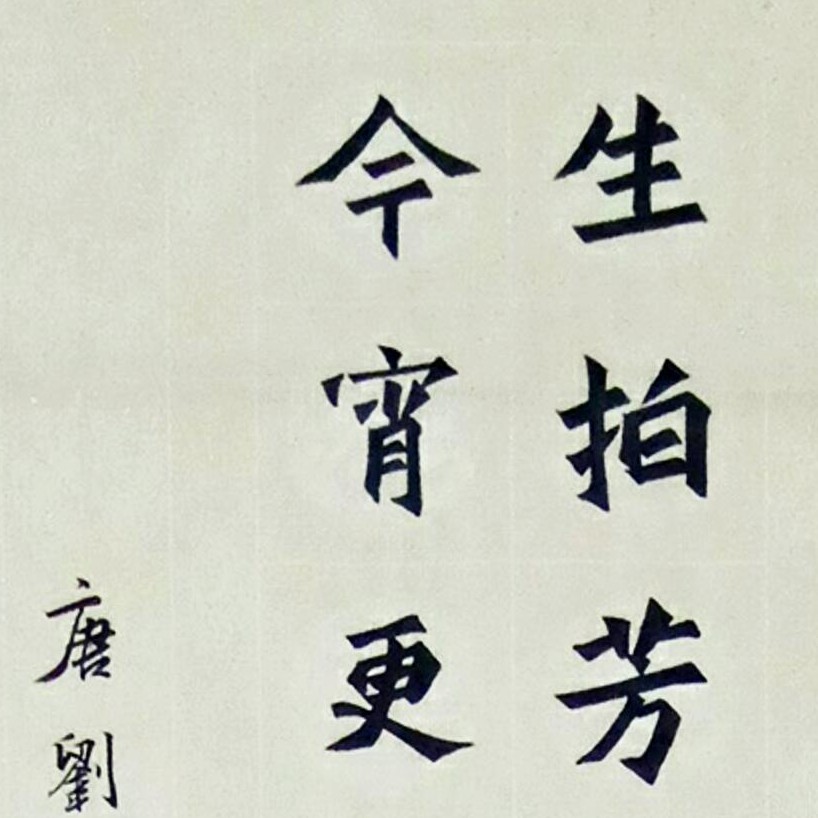 生拍芳
今宵更
唐劉